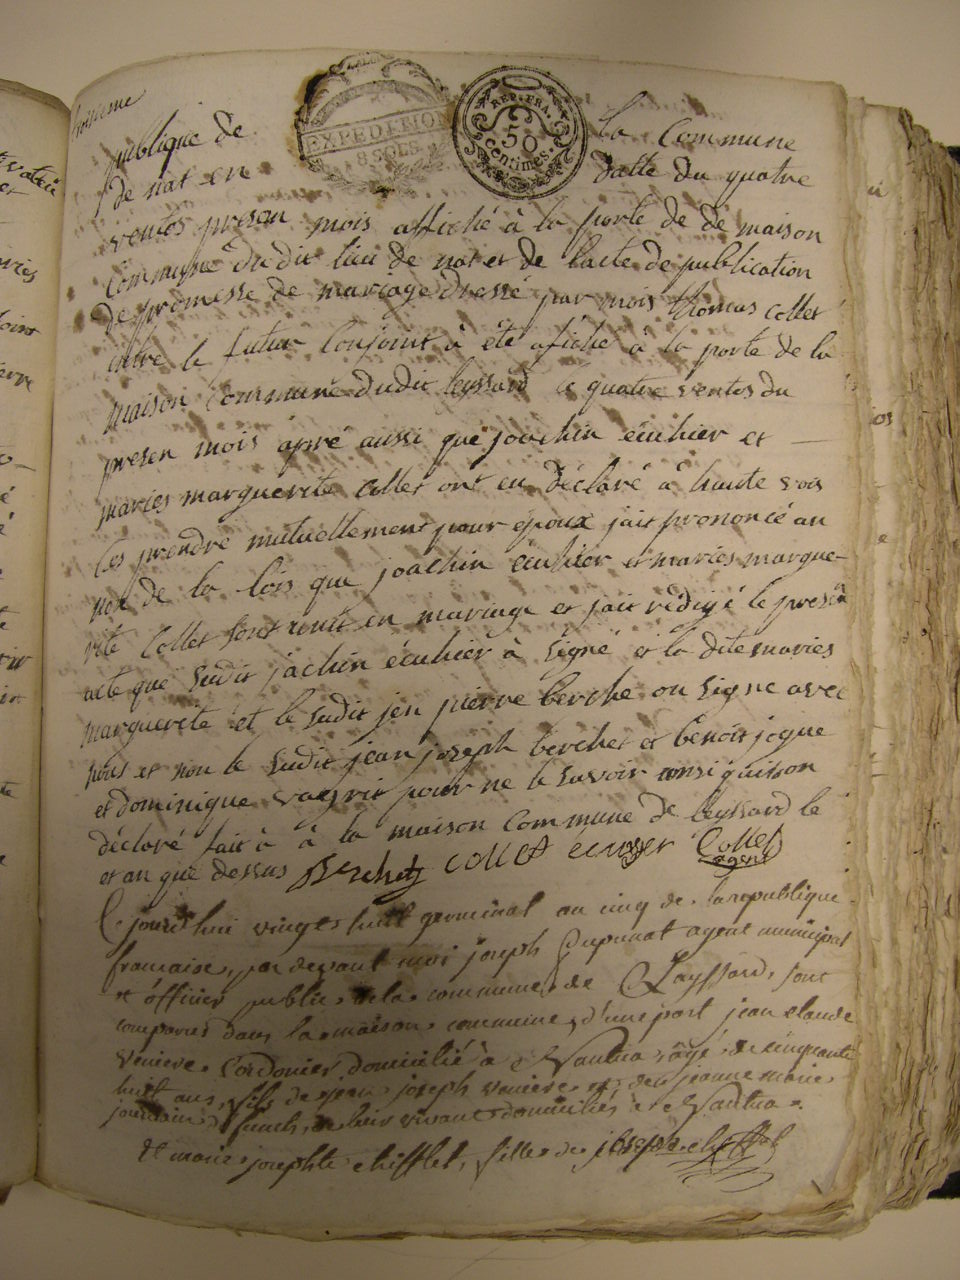 troisieme
EXPEDITION
8 SOLS
REP. FRA.
50
centimes.
publique de la commune
de nat en datte du quatre
ventos presan mois affiché à la porte de de maison
commune dudit lieu de nat et de lacte de publication
de promesse de mariage dressé par mois thomas collet
entre le futur conjoint à été afiché à la porte de la
maison commune dudit leyssard le quatre ventos du
presen mois apré aussi que joachin écuhier et
maries marguerite collet ont eu déclaré à haute vois
ces prendre mutuellement pour époux jait prononcé au
non de la lois que joachin écuhier et maries margue-
rite collet sont unit en mariage et jait rédigé le presen
acte que sudit jachin écuhier à signé et la dite maries
marguerite et le sudit jen pierre berche on signe avec
nous et non le sudit jean joseph berchet et benoit jogue
et dominique pour ne le savoir ainsi quisson
déclaré fait à à la maison commune de leyssard le
et an que dessus Berchet collet écuyer Collet
agent
Ce jourd'hui vingt huit germinal an cinq de la republique
francaise, par devant moi joseph Dupunat agent municipal
et officier public de la commune de Layssard, sont
comparus dans la maison commune, d'une part jean claude
veniere cordonier domicilié à Nantua, âgé de cinquante
huit ans, fils de jean joseph veniere et de jeanne marie
jourdain, de leur vivant domiciliés à Nantua.
Et marie josephte chifflet, fille de joseph chifflet